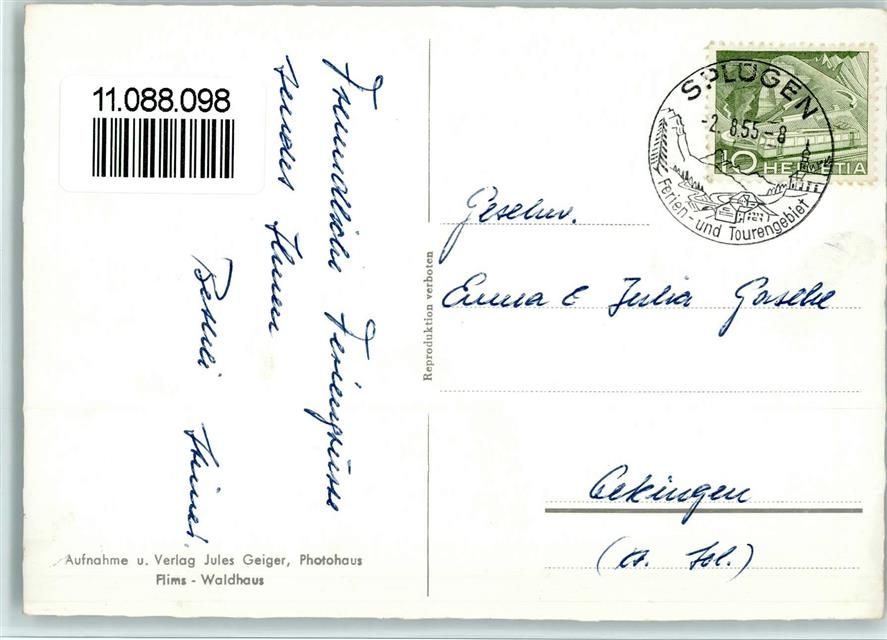 11.088.098
Freundliche Feriengrüsse
sendet Ihnen
SPLÜGEN
-2.8.55-8
Ferien- und Tourengebiet
10 HELVETIA
Geschw.
Emma & Julia
Oekingen
(Kt. Sol.)
Reproduktion verboten
Aufnahme u. Verlag Jules Geiger, Photohaus
Flims - Waldhaus